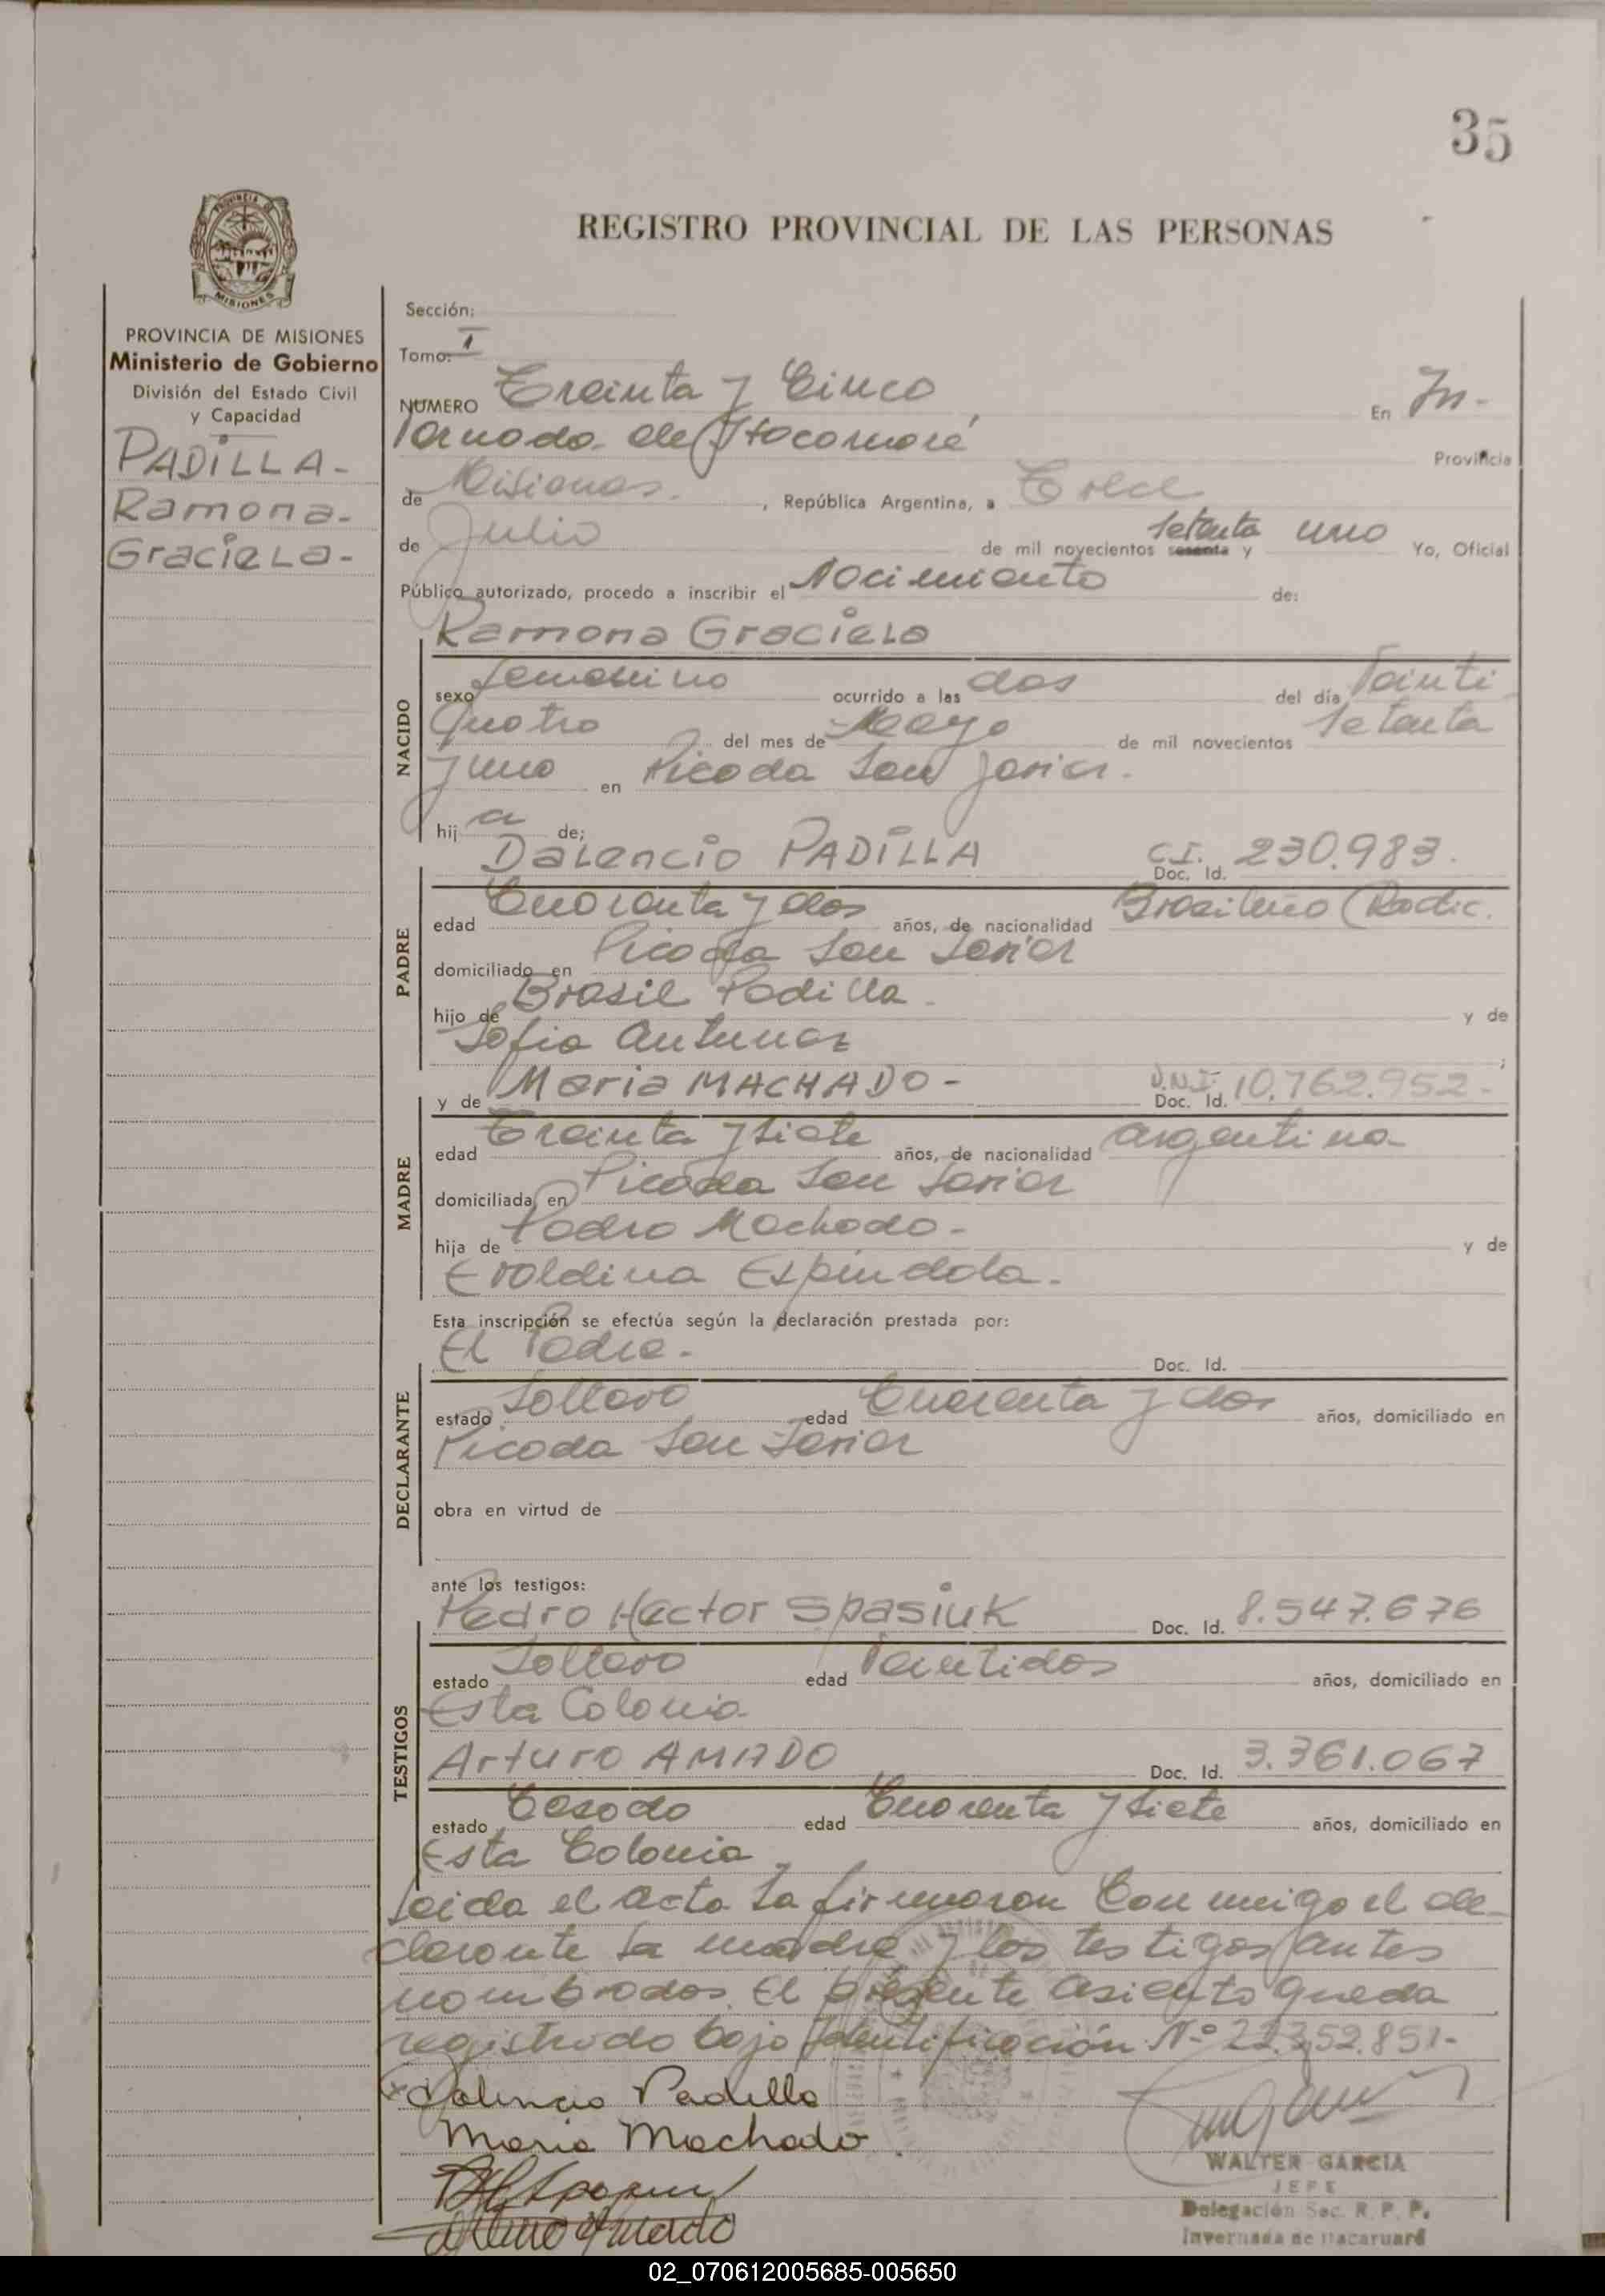 35
REGISTRO PROVINCIAL DE LAS PERSONAS
PROVINCIA DE
MISIONES
PROVINCIA DE MISIONES
Ministerio de Gobierno
División del Estado Civil
y Capacidad
PADILLA-
Ramona-
Graciela-
Sección:
Tomo: I
NUMERO Treinta y Cinco En In-
vernada de Itacaruaré Provincia
de Misiones. , República Argentina, a Trece
de Julio de mil novecientos sesenta y setenta uno Yo, Oficial
Público autorizado, procedo a inscribir el Nacimiento de:
Ramona Graciela
NACIDO
sexo femenino ocurrido a las dos del día Veinti
Cuatro del mes de Mayo de mil novecientos Setenta
y uno en Picada San Javier.
hij a de;
Dalencio PADILLA C.I. Doc. Id. 230.983.
PADRE
edad Cuarenta y dos años, de nacionalidad Brasileño (Radic.
domiciliado en Picada San Javier
hijo de Brasil Padilla. y de
Sofia Antunez ;
y de Maria MACHADO- D.N.I. Doc. Id. 10.762.952-
MADRE
edad Treinta y siete años, de nacionalidad argentina
domiciliada en Picada San Javier
hija de Pedro Machado- y de
Eroldina Espindola.
Esta inscripción se efectúa según la declaración prestada por:
El Padre. Doc. Id.
DECLARANTE
estado Soltero edad Cuarenta y dos años, domiciliado en
Picada San Javier
obra en virtud de
ante los testigos:
Pedro Hector Spasiuk Doc. Id. 8.547.676
TESTIGOS
estado Soltero edad Veintidos años, domiciliado en
Esta Colonia
Arturo AMADO Doc. Id. 3.361.067
estado Casado edad Cuarenta y siete años, domiciliado en
Esta Colonia
Leida el acta la firmaron Conmigo el de-
clarante la madre y los testigos antes
nombrados. El presente asiento queda
registrado bajo Identificación Nº 22.352.851-
x Dalencio Padilla
Maria Machado
Arturo Amado
WALTER GARCIA
JEFE
Delegación Sec. R. P. P.
Invernada de Itacaruaré
02_070612005685-005650